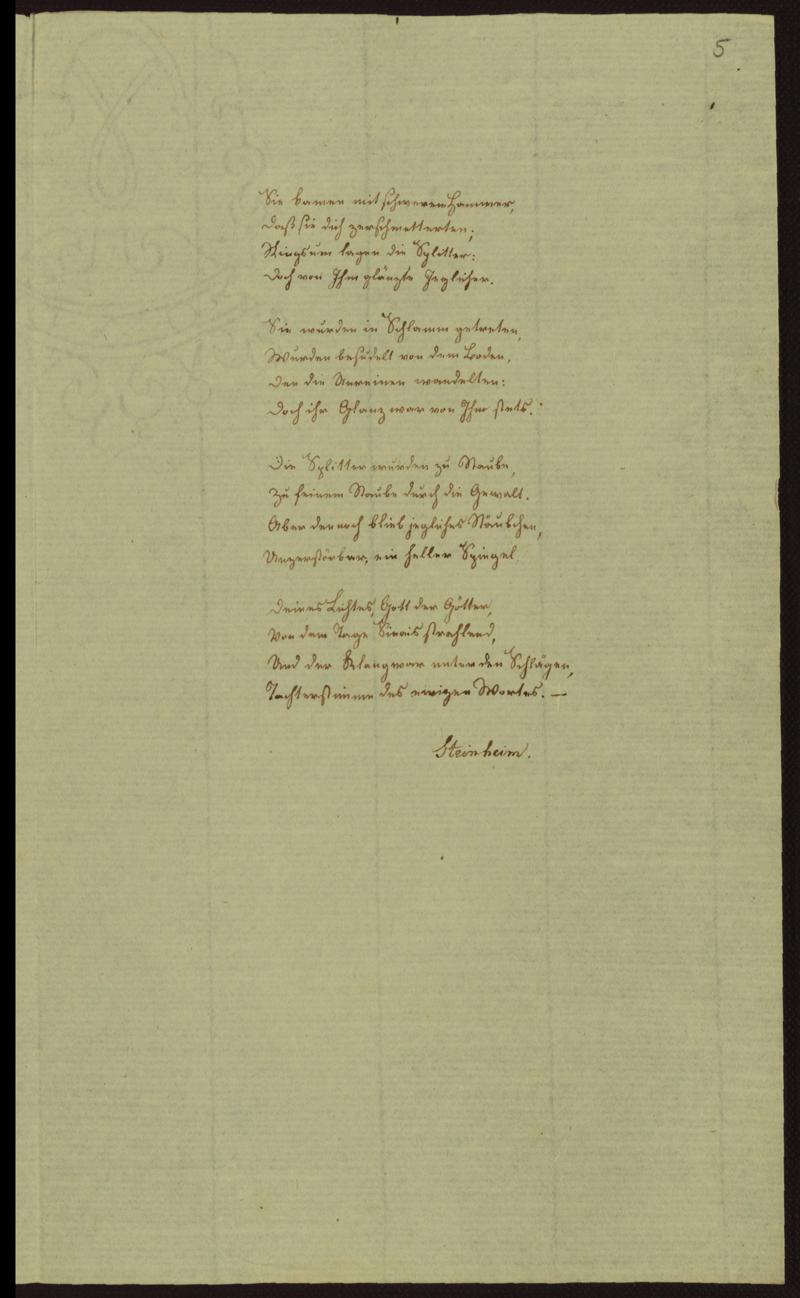 5
Sie kamen mit schwerem Hammer,
Daß sie dich zerschmetterten;
Ringsum lagen die Splitter:
Doch von Ihm glänzte Jeglicher.
Sie wurden in Schlamm getreten,
Wurden besudelt von dem Boden,
Den die Unreinen wandelten:
Doch ihr Glanz war von Ihm stets.
Die Splitter wurden zu Staube,
Zu feinem Staube durch die Gewalt.
Aber dennoch blieb jegliches Stäubchen,
Unzerstörbar, ein heller Spiegel
Deines Lichtes, Gott der Götter,
Von dem Tage Sinais strahlend,
Und der Klang war unter den Schlägen,
Tochterstimme des ewigen Wortes. —
Steinheim.